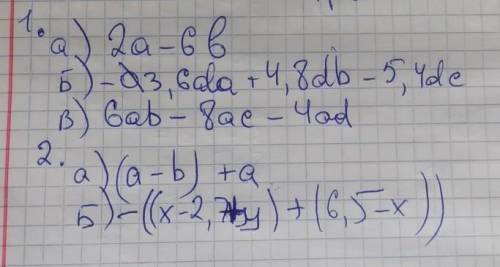 1.
а) 2a - 6b
Б) - 3,6da + 4,8db - 5,4dc
В) 6ab - 8ac - 4ad
2.
а) (a - b) + a
Б) - ((x - 2,7y) + (6,5 - x))